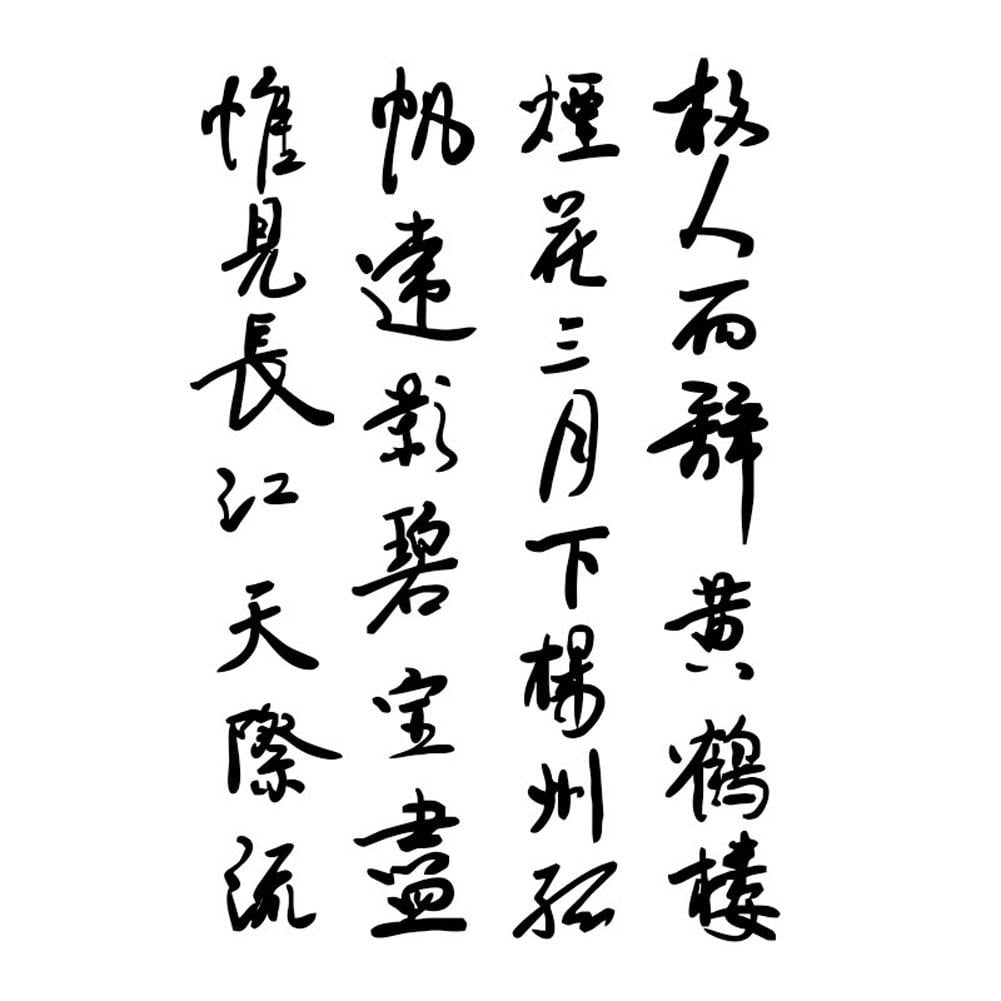 故人西辭黄鶴樓
煙花三月下楊州孤
帆遠影碧空盡
惟見長江天際流